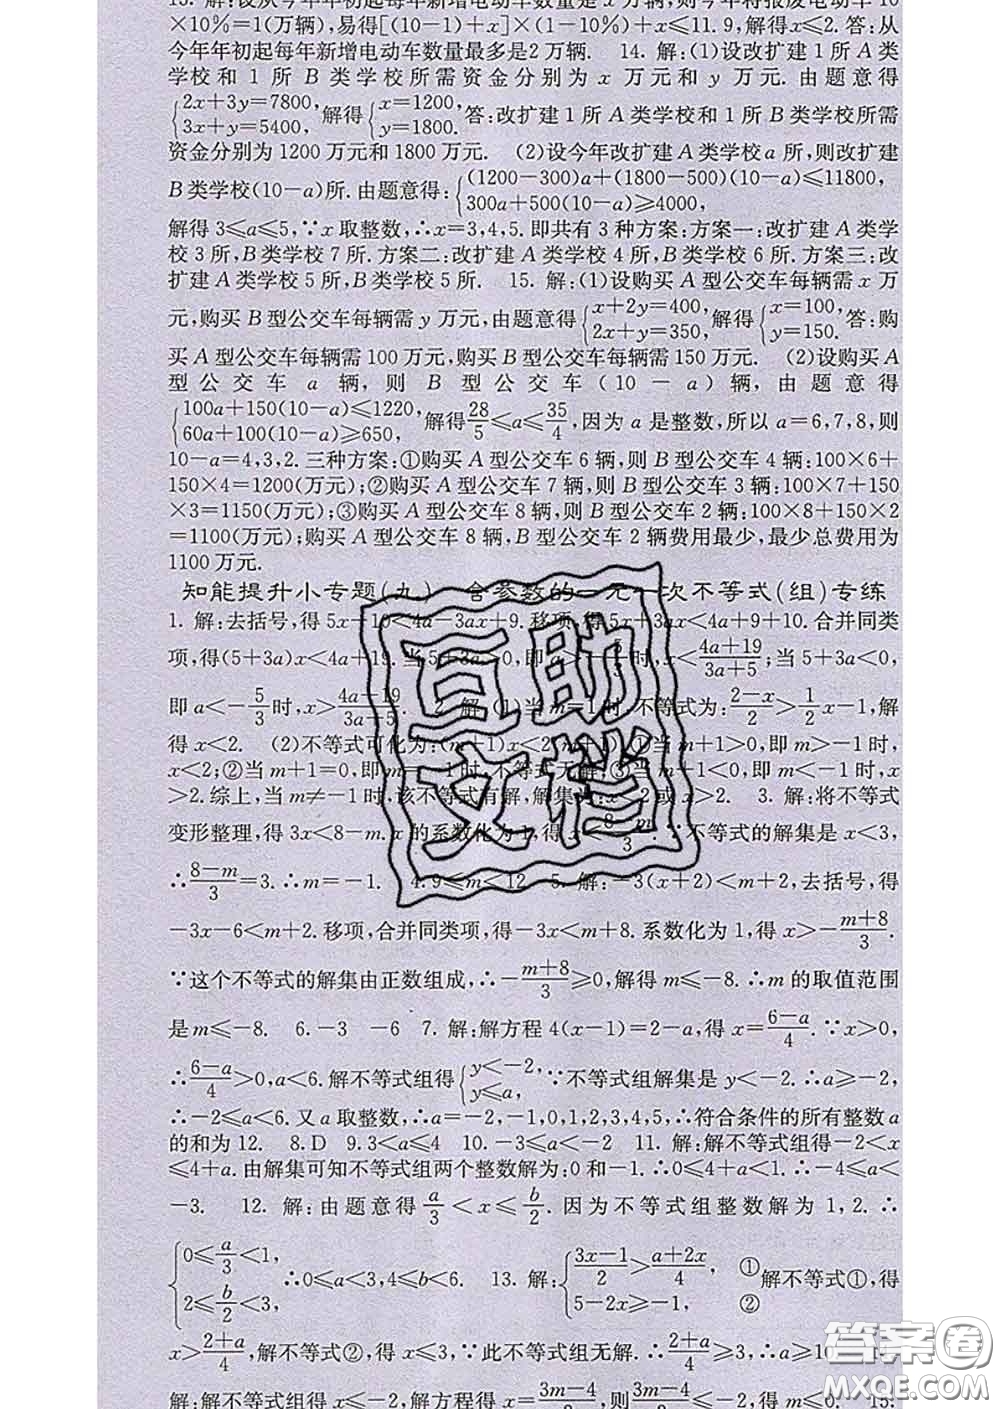 13. 解:设从今年年初起每年新增电动车数量是 x 万辆,则今年将报废电动车 10
×10%=1(万辆),易得[(10-1)+x]×(1-10%)+x≤11.9,解得x≤2.答:从
今年年初起每年新增电动车数量最多是2万辆. 14. 解:(1)设改扩建 1 所 A 类
学校和 1 所 B 类学校所需资金分别为 x 万元和 y 万元. 由题意得
{2x+3y=7800, 3x+y=5400, 解得{x=1200, y=1800. 答:改扩建 1 所A 类学校和 1 所B 类学校所需
资金分别为 1200 万元和 1800 万元. (2)设今年改扩建A 类学校a 所,则改扩建
B 类学校(10-a)所. 由题意得:{(1200-300)a+(1800-500)(10-a)≤11800, 300a+500(10-a)≥4000,
解得 3≤a≤5,∵x 取整数,∴x=3,4,5. 即共有 3 种方案:方案一:改扩建 A 类学
校 3 所,B类学校 7 所. 方案二:改扩建 A 类学校 4 所,B 类学校 6 所. 方案三:改
扩建 A 类学校 5 所,B 类学校 5 所. 15. 解:(1)设购买 A 型公交车每辆需 x 万
元,购买 B 型公交车每辆需 y 万元,由题意得{x+2y=400, 2x+y=350, 解得{x=100, y=150. 答:购
买 A 型公交车每辆需 100 万元,购买 B 型公交车每辆需 150 万元. (2)设购买 A
型公交车 a 辆,则 B 型公交车(10-a)辆,由题意得
{100a+150(10-a)≤1220, 60a+100(10-a)≥650, 解得28/5≤a≤35/4,因为 a 是整数,所以 a=6,7,8,则
10-a=4,3,2. 三种方案:①购买 A 型公交车 6 辆,则 B 型公交车 4 辆:100×6+
150×4=1200(万元);②购买 A 型公交车 7 辆,则 B 型公交车 3 辆:100×7+150
×3=1150(万元);③购买 A 型公交车 8 辆,则 B 型公交车 2 辆:100×8+150×2
=1100(万元);购买 A 型公交车 8 辆,B 型公交车 2 辆费用最少,最少总费用为
1100 万元.
知能提升小专题(九) 含参数的一元一次不等式(组)专练
1. 解:去括号,得 5x+10<4a-3ax+9. 移项,得 5x+3ax<4a+9+10. 合并同类
项,得(5+3a)x<4a+19. 当 5+3a>0,即 a>-5/3时,x<(4a+19)/(3a+5);当 5+3a<0,
即 a<-5/3时,x>(4a+19)/(3a+5). 2. 解:(1)当 m=1 时,不等式为:(2-x)/2>1/2x-1,解
得 x<2. (2)不等式可化为:(m+1)x<2(m+1),①当 m+1>0,即 m>-1 时,
x<2;②当 m+1=0,即 m=-1 时,不等式无解;③当 m+1<0,即 m<-1 时,x
>2. 综上,当 m≠-1 时,该不等式有解,解集为 x<2 或 x>2. 3. 解:将不等式
变形整理,得 3x<8-m. x 的系数化为 1,得 x<(8-m)/3. ∵不等式的解集是 x<3,
∴(8-m)/3=3. ∴m=-1. 4. 9≤m<12 5. 解:-3(x+2)<m+2,去括号,得
-3x-6<m+2. 移项,合并同类项,得-3x<m+8. 系数化为 1,得 x>-(m+8)/3.
∵这个不等式的解集由正数组成,∴-(m+8)/3≥0,解得 m≤-8. ∴m 的取值范围
是 m≤-8. 6. -3 -6 7. 解:解方程 4(x-1)=2-a,得 x=(6-a)/4. ∵x>0,
∴(6-a)/4>0,a<6. 解不等式组得{y<-2, y≤a, ∵不等式组解集是 y<-2. ∴a≥-2,
∴-2≤a<6. 又 a 取整数,∴a=-2,-1,0,1,2,3,4,5,∴符合条件的所有整数 a
的和为 12. 8. D 9. 3<a≤4 10. -3≤a<-2 11. 解:解不等式组得-2<x
≤4+a. 由解集可知不等式组两个整数解为:0 和-1. ∴0≤4+a<1. ∴-4≤a<
-3. 12. 解:由题意得a/3<x≤b/2. 因为不等式组整数解为 1,2. ∴
{0≤a/3<1, 2≤b/2<3, ∴0≤a<3,4≤b<6. 13. 解:{(3x-1)/2>(a+2x)/4, ① 5-2x≥-1, ② 解不等式①,得
x>(2+a)/4,解不等式②,得 x≤3,∵此不等式组无解. ∴(2+a)/4≥3,∴a≥10. 14.
解:解不等式组得 x≤-2,解方程得 x=(3m-4)/2,则(3m-4)/2≤-2,得 m≤0. 15.
互助文档
答案圈
MXQE.COM